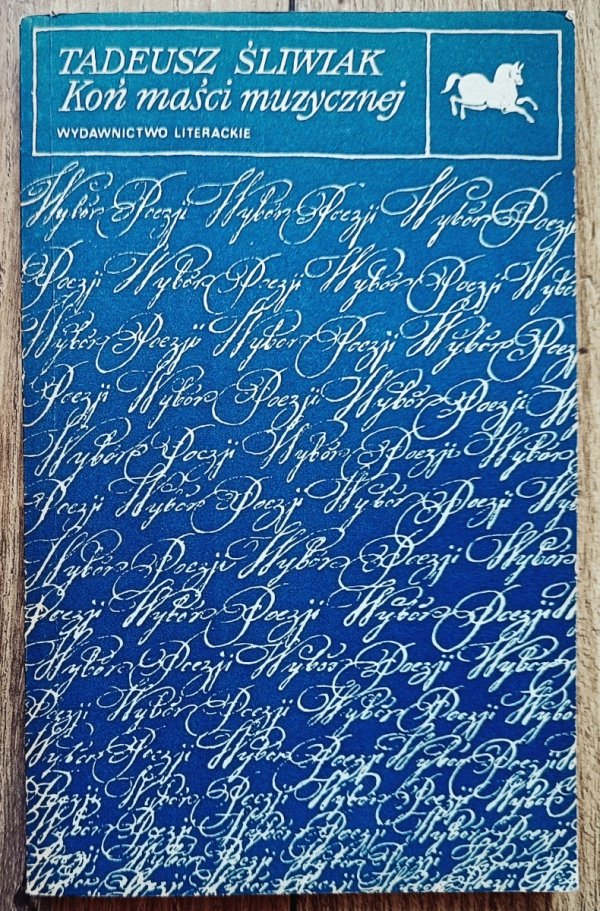 TADEUSZ ŚLIWIAK
Koń maści muzycznej
WYDAWNICTWO LITERACKIE
Wybór Poezji Wybór Poezji Wybór Poezji
Poezji Wybór Poezji Wybór Poezji Wybór
Wybór Poezji Wybór Poezji Wybór Poezji
Poezji Wybór Poezji Wybór Poezji W
Wybór Poezji Wybór Poezji Wybór
Poezji Wybór Poezji Wybór Poezji Wy
Wybór Poezji Wybór Poezji Wybór
Poezji Wybór Poezji Wybór Poezji W
Wybór Poezji Wybór Poezji Wybór
Poezji Wybór Poezji Wybór Poezji Wybór
Wybór Poezji Wybór Poezji Wybór Poezji
Poezji Wybór Poezji Wybór Poezji Wybór
Wybór Poezji Wybór Poezji Wybór